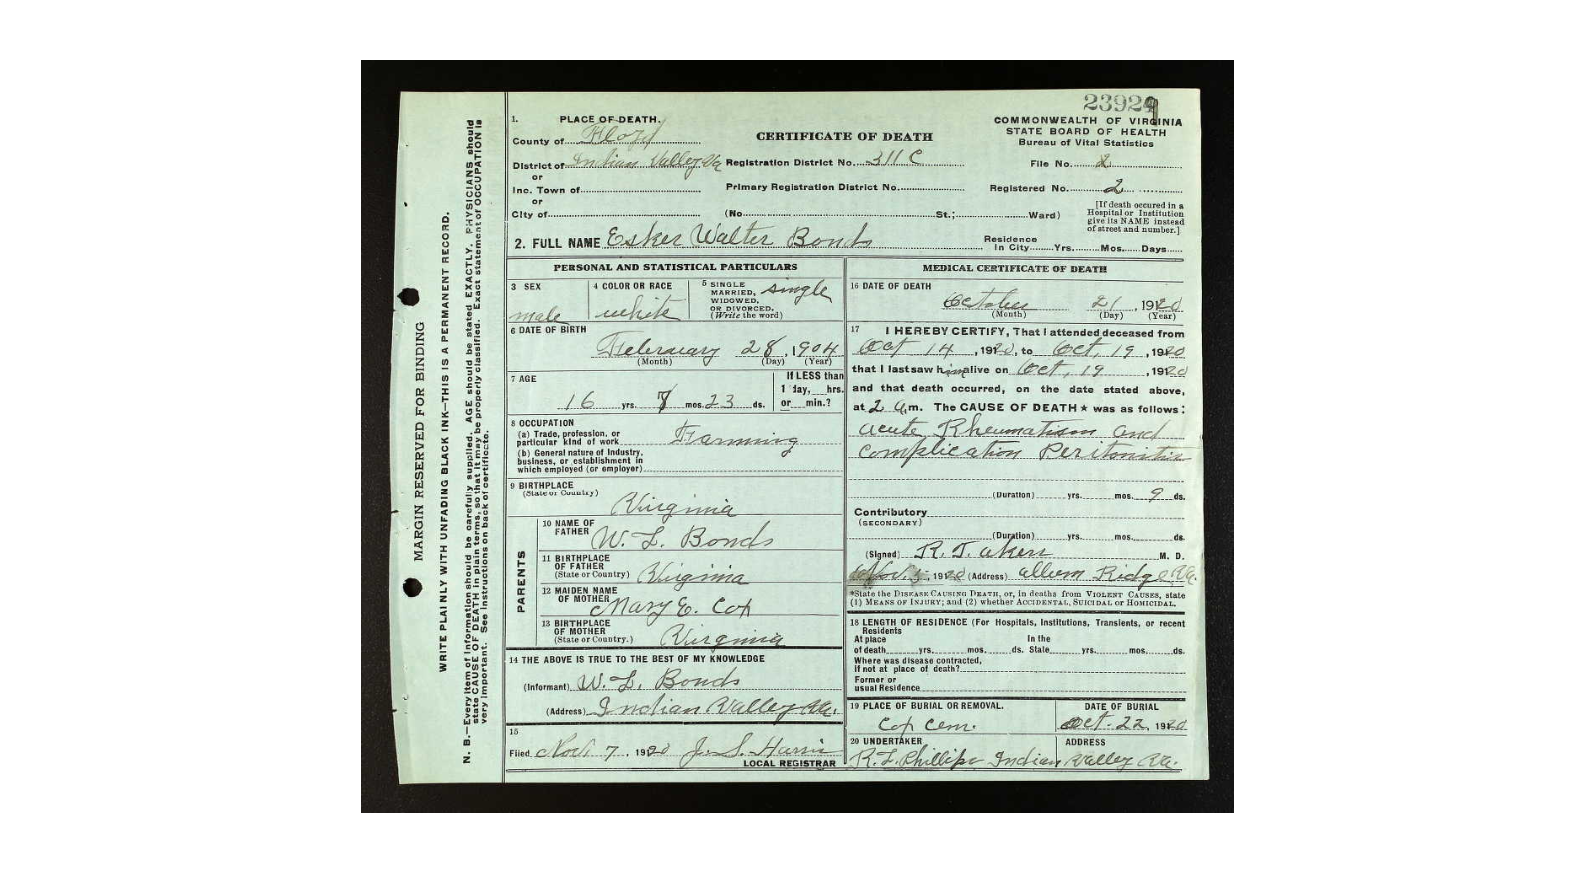 23929
1. PLACE OF DEATH.
County of Floyd
District of Indian Valley Va
or
Inc. Town of
or
City of
CERTIFICATE OF DEATH
Registration District No. 311 C
Primary Registration District No.
(No. St.; Ward)
COMMONWEALTH OF VIRGINIA
STATE BOARD OF HEALTH
Bureau of Vital Statistics
File No. 2
Registered No. 2
[If death occured in a
Hospital or Institution
give its NAME instead
of street and number.]
2. FULL NAME Esker Walter Bonds
Residence
In City Yrs. Mos. Days
PERSONAL AND STATISTICAL PARTICULARS
3 SEX
male
4 COLOR OR RACE
white
5 SINGLE
MARRIED,
WIDOWED,
OR DIVORCED.
(Write the word)
single
6 DATE OF BIRTH
February 28, 1904
(Month) (Day) (Year)
7 AGE
16 yrs. 7 mos. 23 ds.
If LESS than
1 day, hrs.
or min.?
8 OCCUPATION
(a) Trade, profession, or
particular kind of work Farming
(b) General nature of Industry,
business, or establishment in
which employed (or employer)
9 BIRTHPLACE
(State or Country)
Virginia
PARENTS
10 NAME OF
FATHER W. L. Bonds
11 BIRTHPLACE
OF FATHER
(State or Country) Virginia
12 MAIDEN NAME
OF MOTHER Mary E. Cox
13 BIRTHPLACE
OF MOTHER
(State or Country.) Virginia
14 THE ABOVE IS TRUE TO THE BEST OF MY KNOWLEDGE
(Informant) W. L. Bonds
(Address) Indian Valley Va.
15
Filed Nov. 7 1920 J. S. Harris
LOCAL REGISTRAR
MEDICAL CERTIFICATE OF DEATH
16 DATE OF DEATH
October 21, 1920
(Month) (Day) (Year)
17 I HEREBY CERTIFY, That I attended deceased from
Oct 14, 1920, to Oct, 19, 1920
that I last saw him alive on Oct, 19, 1920
and that death occurred, on the date stated above,
at 2 a.m. The CAUSE OF DEATH★ was as follows:
acute Rheumatism and
complication Peritonitis
(Duration) yrs. mos. 9 ds.
Contributory
(SECONDARY)
(Duration) yrs. mos. ds.
(Signed) R. T. Akers M. D.
Nov. 5, 1920 (Address) Allum Ridge Va.
*State the DISEASE CAUSING DEATH, or, in deaths from VIOLENT CAUSES, state
(1) MEANS OF INJURY; and (2) whether ACCIDENTAL, SUICIDAL or HOMICIDAL.
18 LENGTH OF RESIDENCE (For Hospitals, Institutions, Transients, or recent
Residents
At place In the
of death yrs. mos. ds. State yrs. mos. ds.
Where was disease contracted,
if not at place of death?
Former or
usual Residence
19 PLACE OF BURIAL OR REMOVAL.
Cox Cem.
DATE OF BURIAL
Oct. 22, 1920
20 UNDERTAKER
R. L. Phillips
ADDRESS
Indian Valley Va.
MARGIN RESERVED FOR BINDING
WRITE PLAINLY WITH UNFADING BLACK INK—THIS IS A PERMANENT RECORD.
N. B.—Every item of Information should be carefully supplied. AGE should be stated EXACTLY. PHYSICIANS should
state CAUSE OF DEATH in plain terms, so that it may be properly classified. Exact statement of OCCUPATION is
very important. See Instructions on back of certificate.